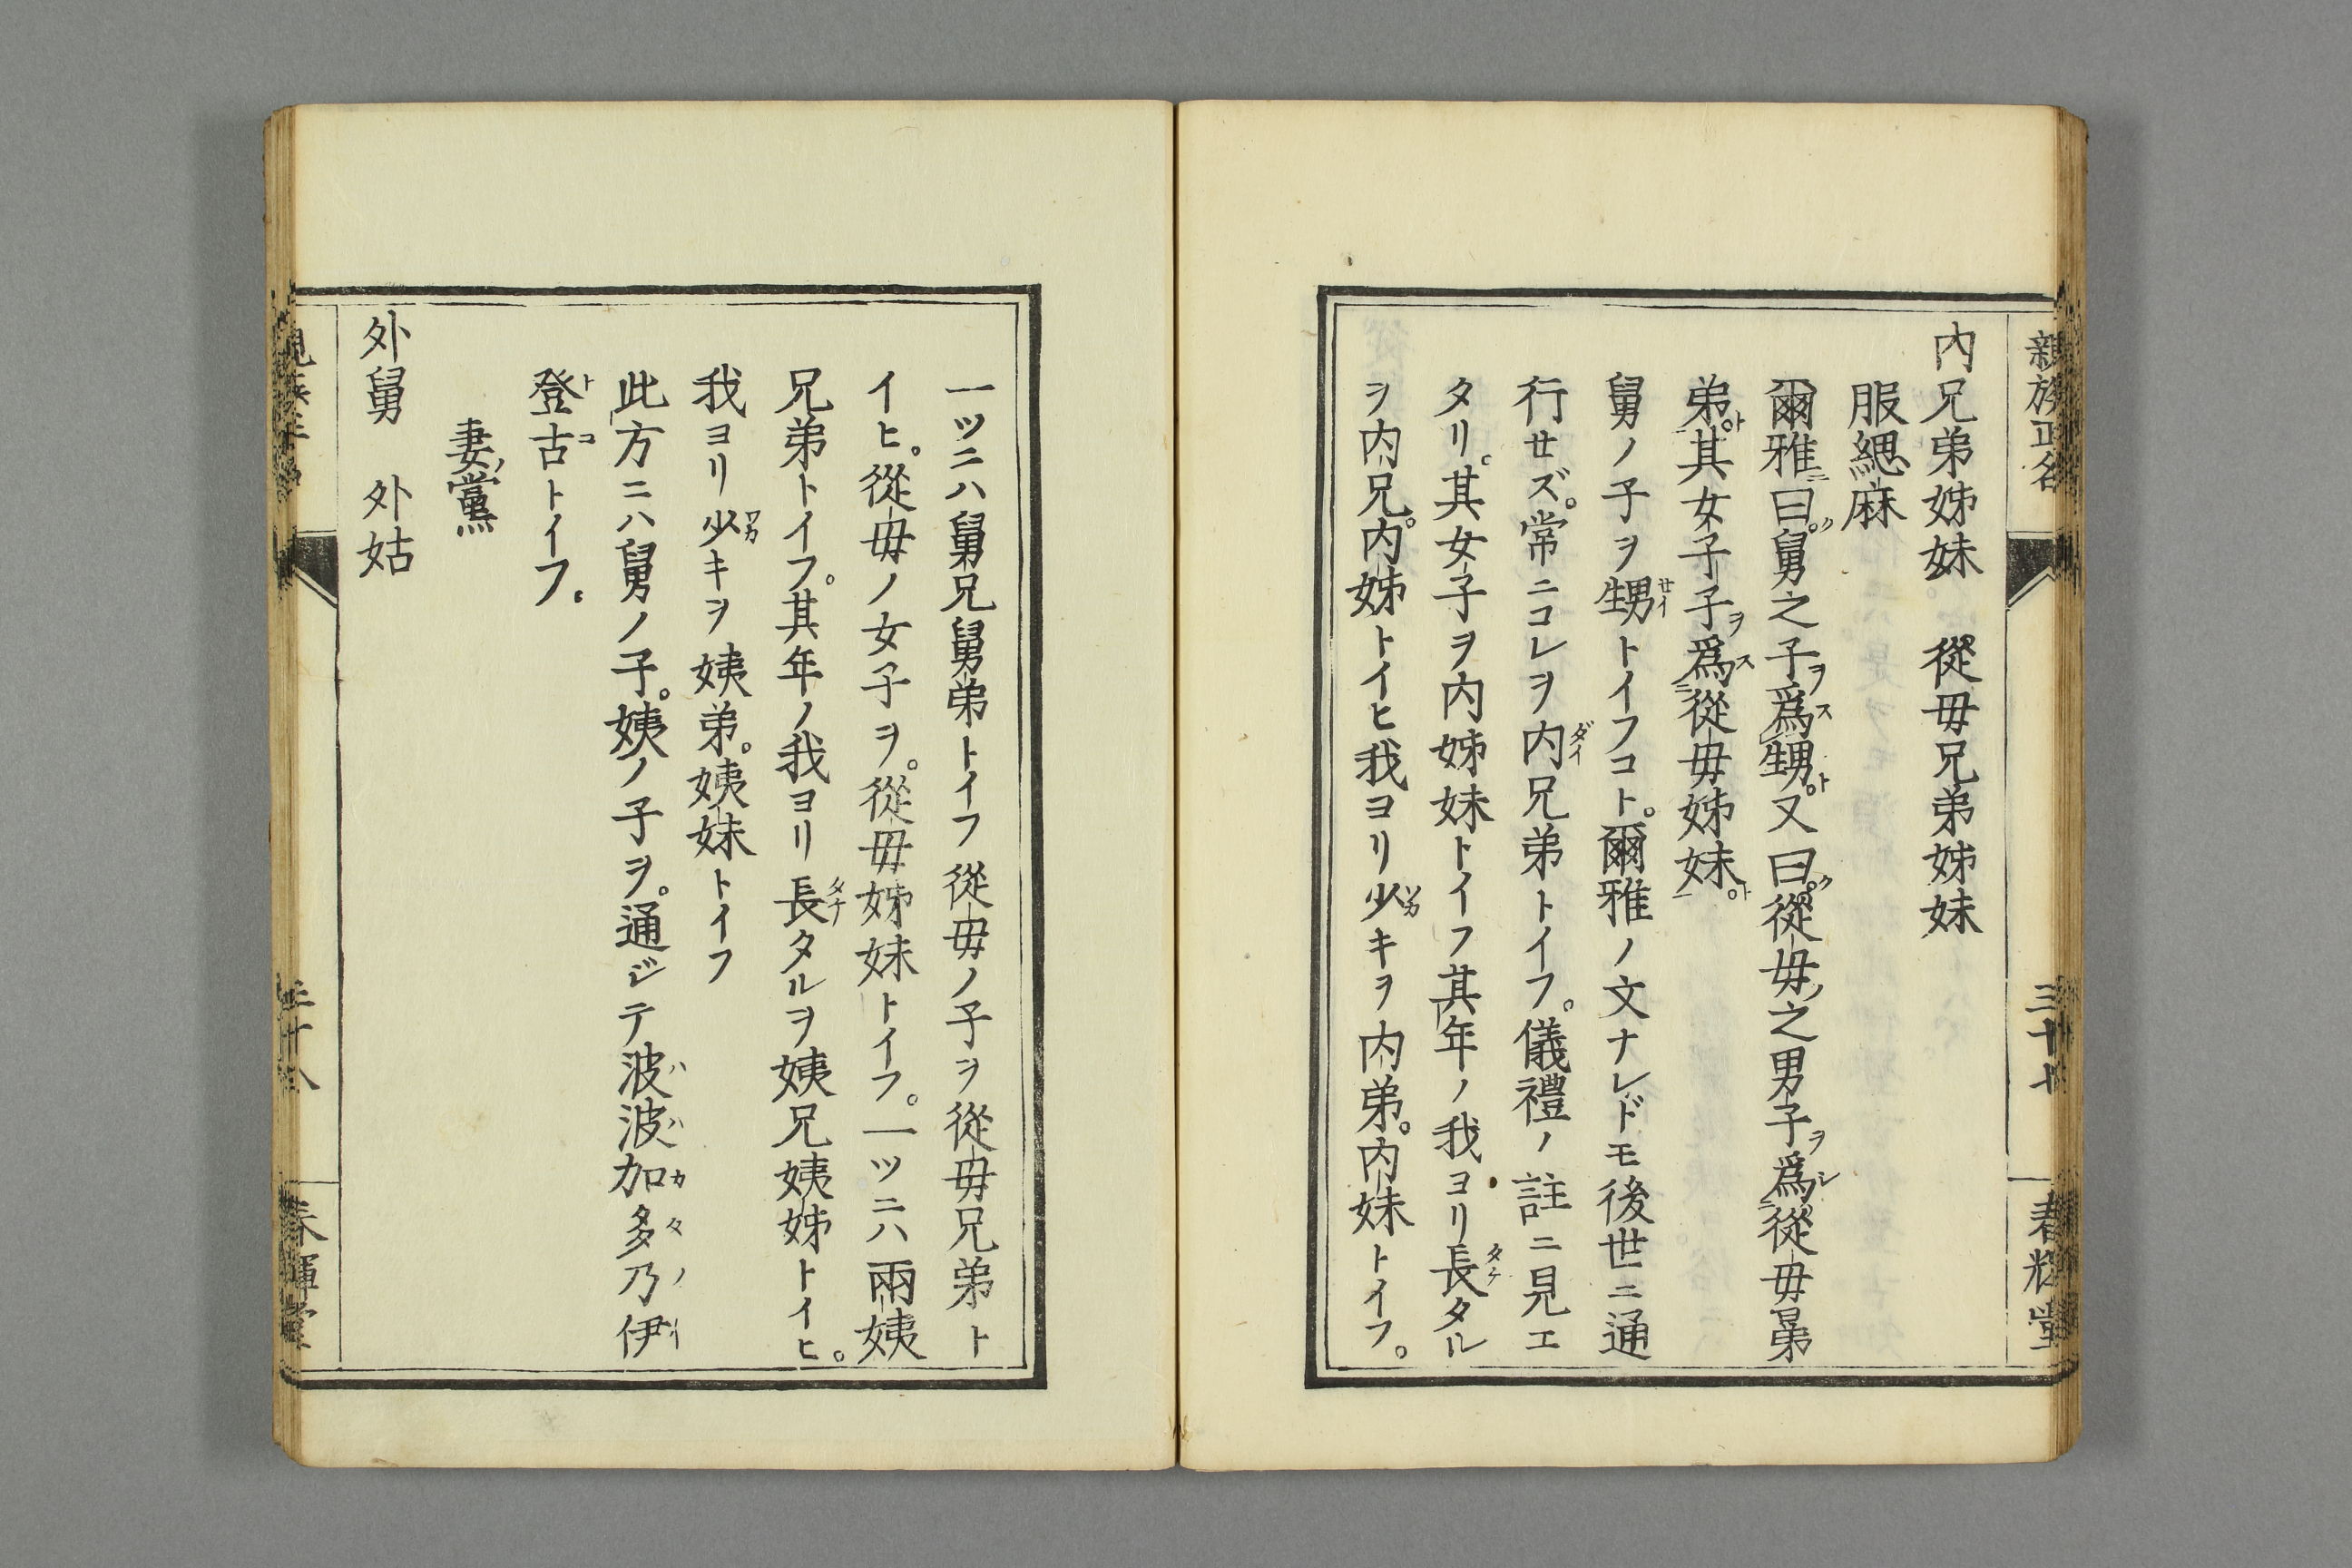 親族正名
三十七
春輝堂
内兄弟姊妹　從母兄弟姊妹
服緦麻
爾雅曰。舅之子爲甥。又曰。從母之男子爲從母晜
弟。其女子子爲從母姊妹。
舅ノ子ヲ甥トイフコト。爾雅ノ文ナレドモ後世ニ通
行セズ。常ニコレヲ内兄弟トイフ。儀禮ノ註ニ見エ
タリ。其女子ヲ内姊妹トイフ其年ノ我ヨリ長タル
ヲ内兄。内姊トイヒ我ヨリ少キヲ内弟。内妹トイフ。
一ツニハ舅兄舅弟トイフ從母ノ子ヲ從母兄弟ト
イヒ。從母ノ女子ヲ。從母姊妹トイフ。一ツニハ兩姨
兄弟トイフ。其年ノ我ヨリ長タルヲ姨兄姨姊トイヒ。
我ヨリ少キヲ姨弟。姨妹トイフ
此方ニハ舅ノ子。姨ノ子ヲ。通ジテ波波加多乃伊
登古トイフ。
妻黨
外舅　外姑
三十八
春輝堂